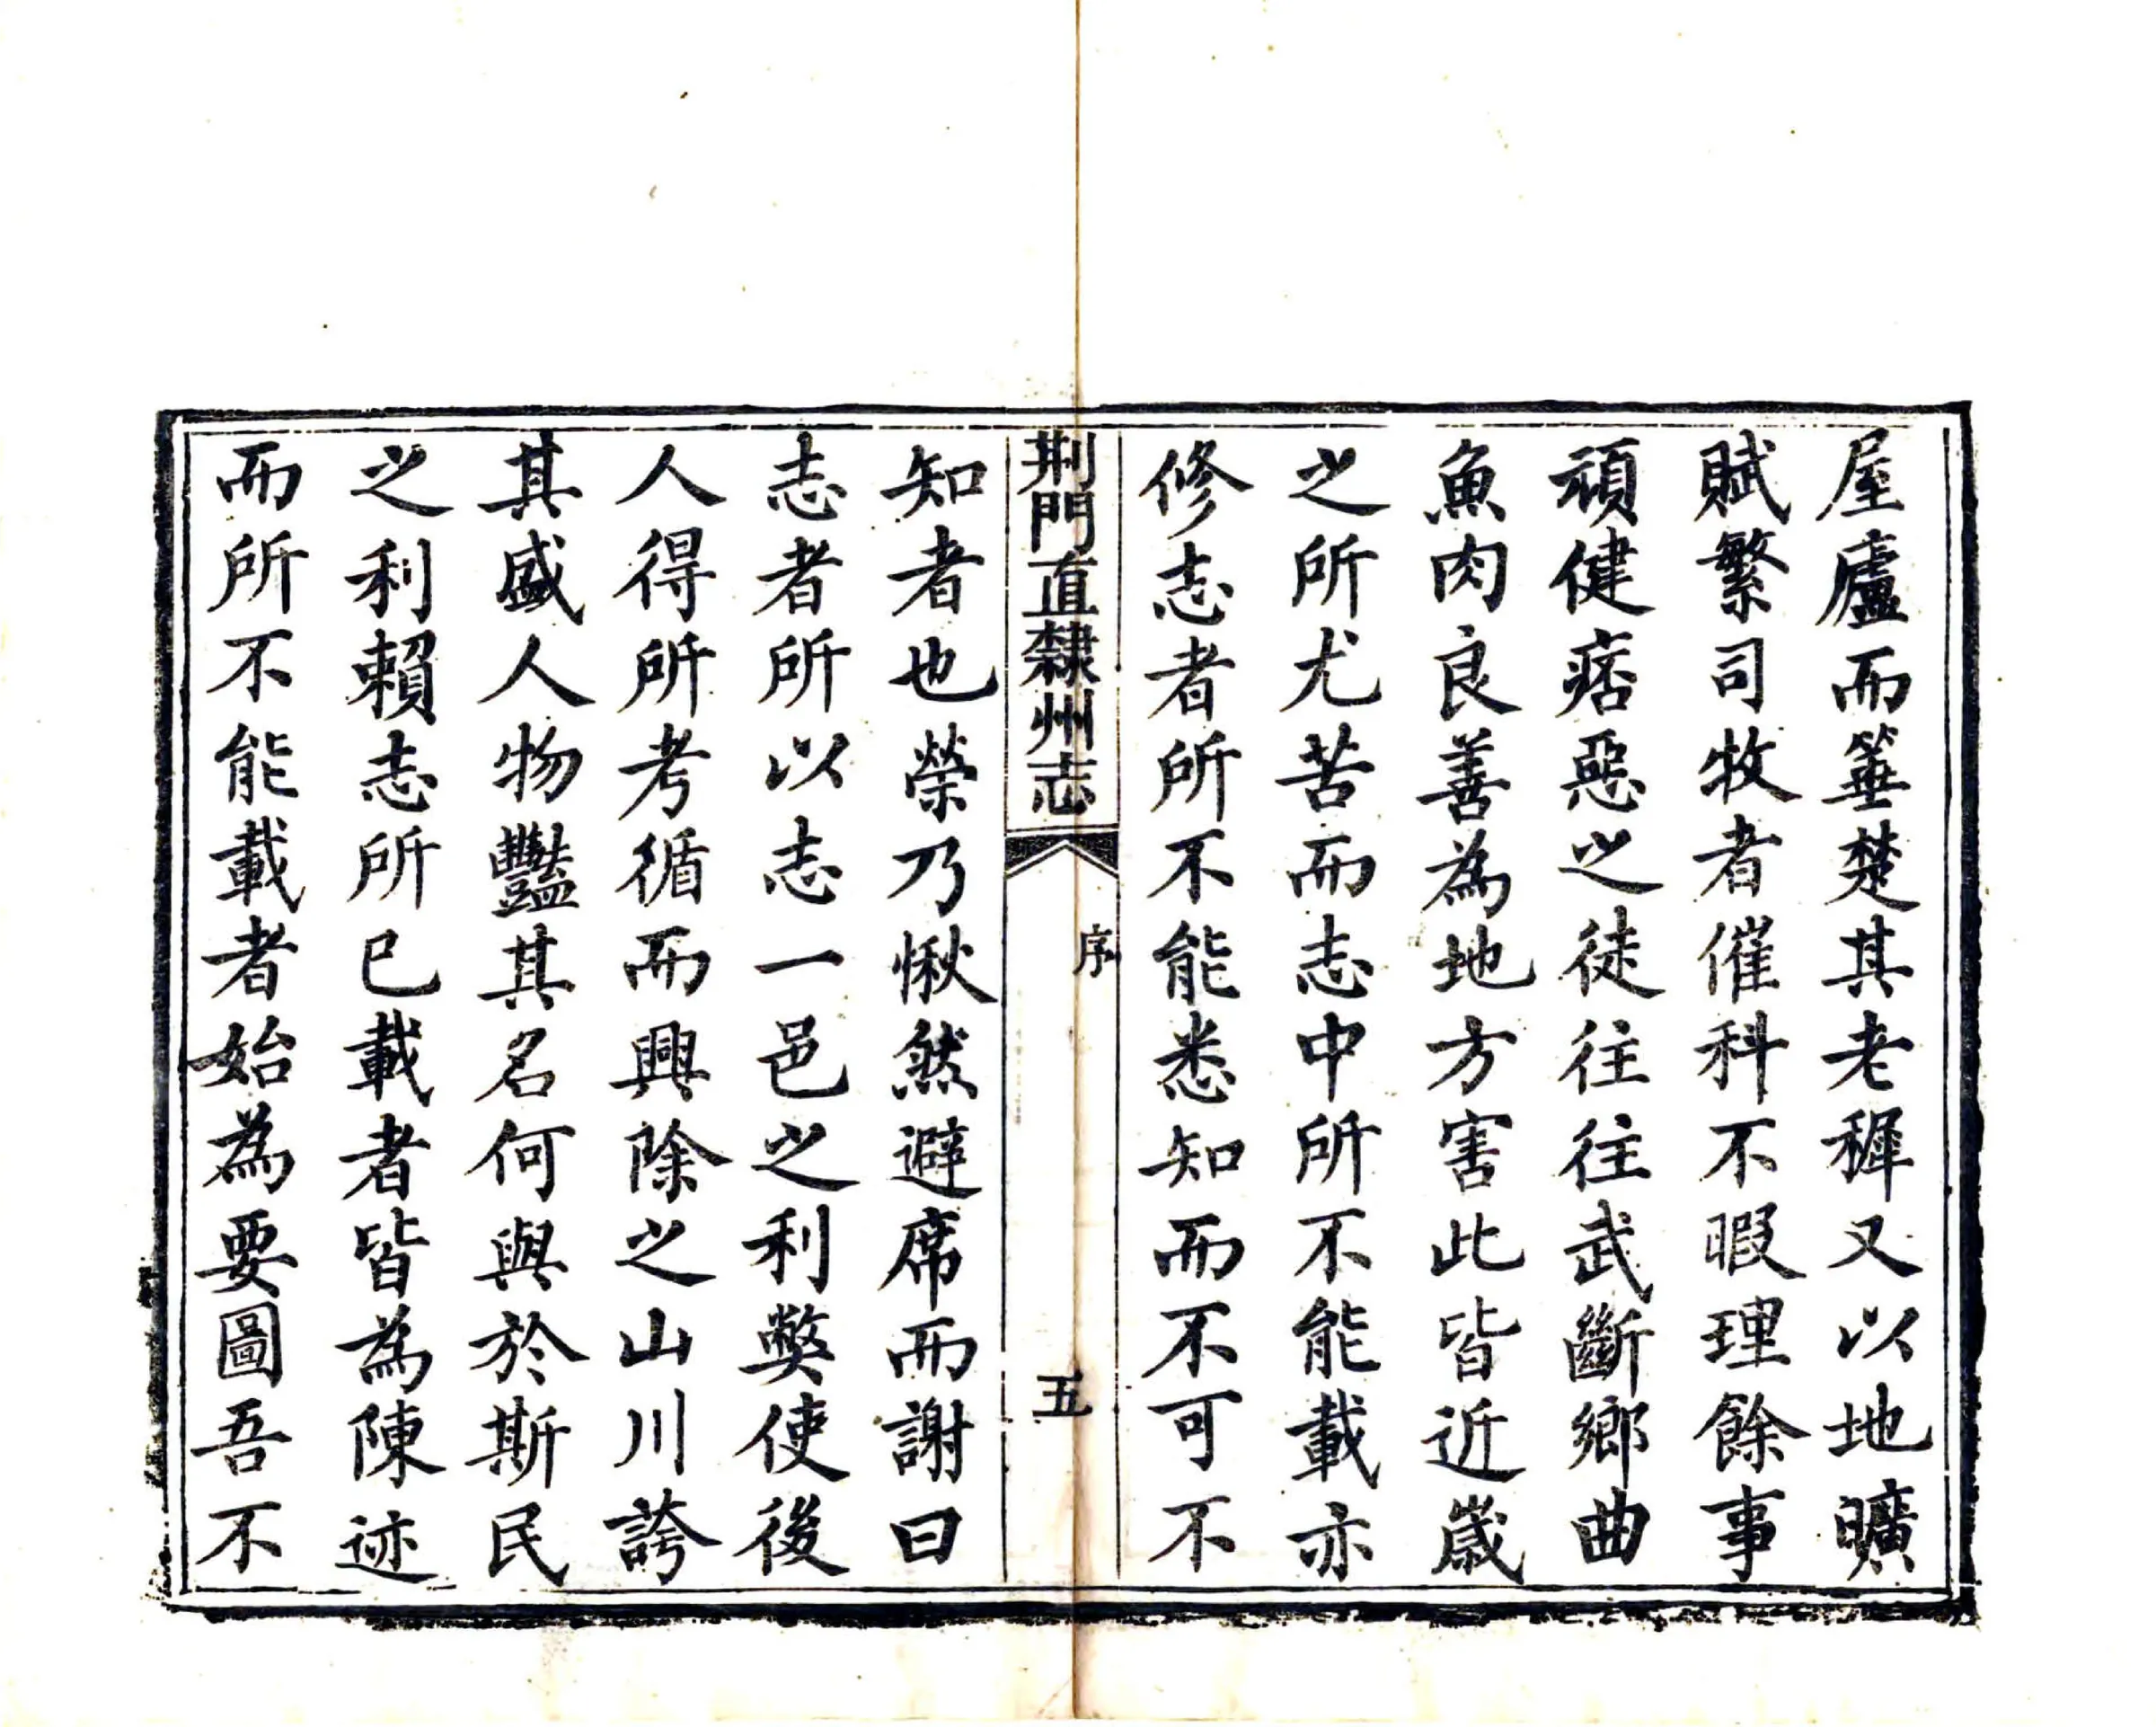 屋廬而箠楚其老穉又以地曠
賦繁司牧者催科不暇理餘事
頑健痞惡之徒往往武斷鄉曲
魚肉良善為地方害此皆近歲
之所尤苦而志中所不能載亦
修志者所不能悉知而不可不
荆門直隸州志
序
五
知者也榮乃愀然避席而謝曰
志者所以志一邑之利獘使後
人得所考循而興除之山川誇
其盛人物豔其名何與於斯民
之利賴志所已載者皆為陳迹
而所不能載者始為要圖吾不